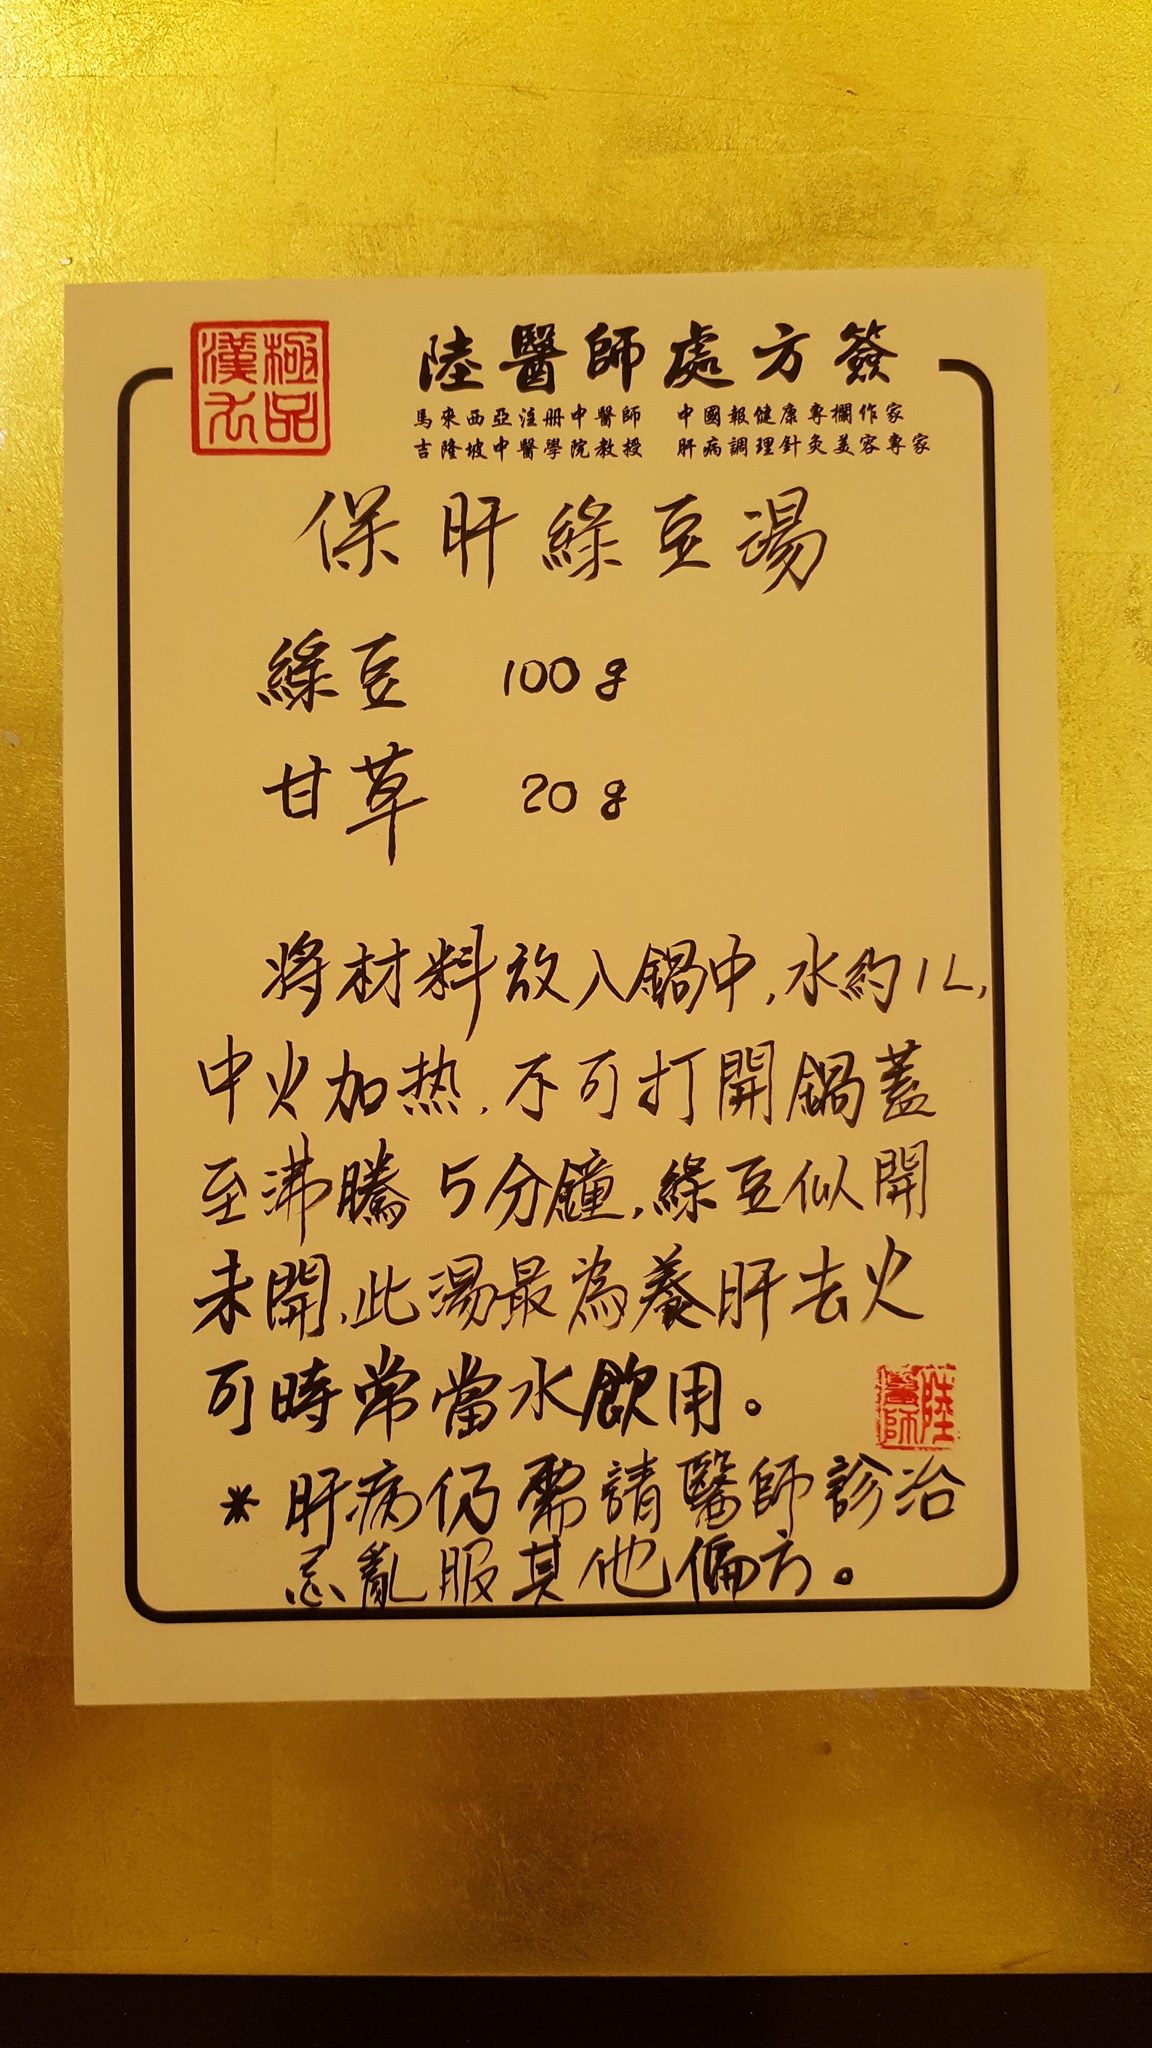 極品
漢方
陸醫師處方簽
馬來西亞注册中醫師 中國報健康專欄作家
吉隆坡中醫學院教授 肝病調理針灸美容專家
保肝綠豆湯
綠豆 100g
甘草 20g
將材料放入鍋中,水約1L,
中火加热,不可打開鍋蓋
至沸騰5分鐘,綠豆似開
未開,此湯最為養肝去火
可時常當水飲用。
陸
醫師
*肝病仍需請醫師診治
忌亂服其他偏方。